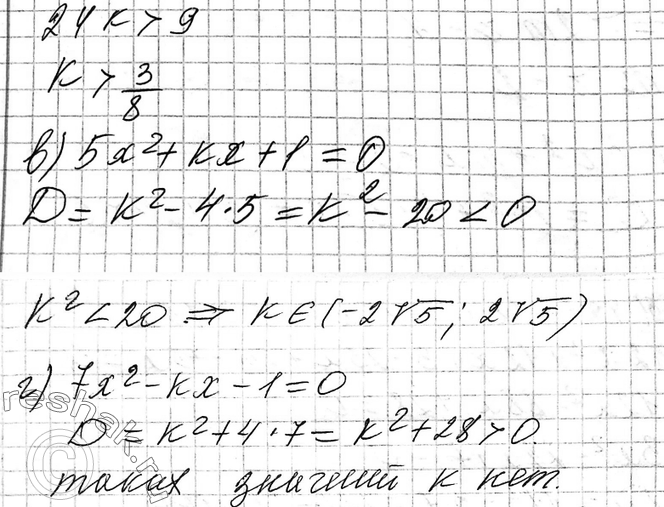 24к > 9
к > 3/8
в) 5x² + кx + 1 = 0
D = к² - 4·5 = к² - 20 < 0
к² < 20 ⇒ к ∈ (-2√5; 2√5)
г) 7x² - кx - 1 = 0
D = к² + 4·7 = к² + 28 > 0.
таких значений к нет.
reshak.ru